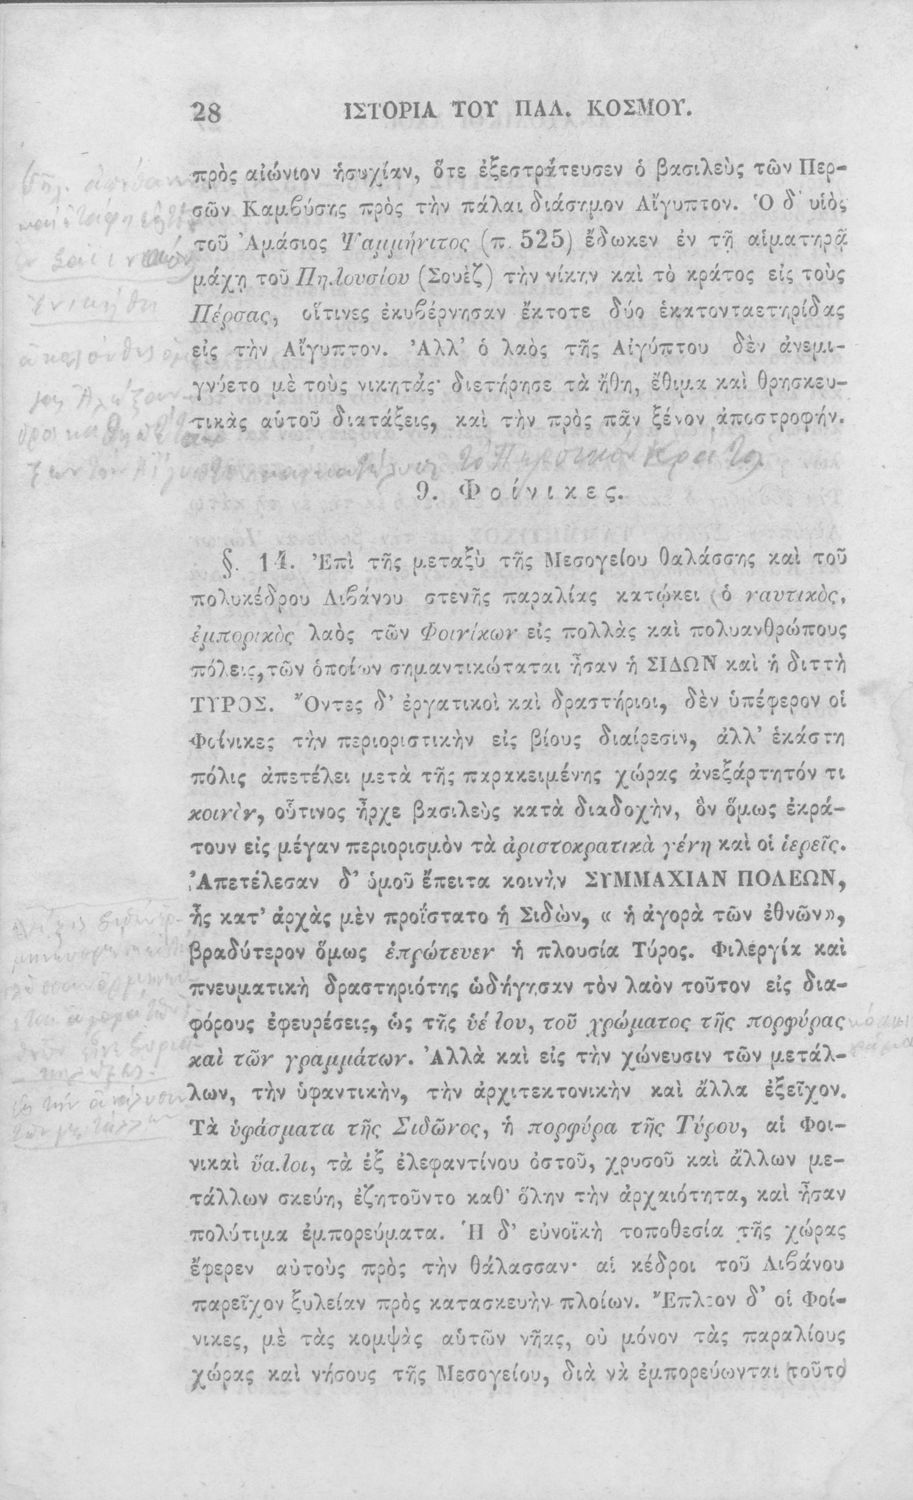 28 ΙΣΤΟΡΙΑ ΤΟΥ ΠΑΛ. ΚΟΣΜΟΥ.
πρὸς αἰώνιον ἡσυχίαν, ὅτε ἐξεστράτευσεν ὁ βασιλεὺς τῶν Περ-
σῶν Καμβύσης πρὸς τὴν πάλαι διάσημον Αἴγυπτον. Ὁ δ' υἱὸς
τοῦ Ἀμάσιος Ψαμμήνιτος (π. 525) ἔδωκεν ἐν τῇ αἱματηρᾷ
μάχῃ τοῦ Πηλουσίου (Σουὲζ) τὴν νίκην καὶ τὸ κράτος εἰς τοὺς
Πέρσας, οἵτινες ἐκυβέρνησαν ἔκτοτε δύο ἑκατονταετηρίδας
εἰς τὴν Αἴγυπτον. Ἀλλ' ὁ λαὸς τῆς Αἰγύπτου δὲν ἀνεμι-
γνύετο μὲ τοὺς νικητάς· διετήρησε τὰ ἤθη, ἔθιμα καὶ θρησκευ-
τικὰς αὑτοῦ διατάξεις, καὶ τὴν πρὸς πᾶν ξένον ἀποστροφήν.
τὸ Περσικὸν Κράτος
9. Φοίνικες.
§. 14. Ἐπὶ τῆς μεταξὺ τῆς Μεσογείου θαλάσσης καὶ τοῦ
πολυκέδρου Λιβάνου στενῆς παραλίας κατῴκει (ὁ ναυτικὸς,
ἐμπορικὸς λαὸς τῶν Φοινίκων εἰς πολλὰς καὶ πολυανθρώπους
πόλεις, τῶν ὁποίων σημαντικώταται ἦσαν ἡ ΣΙΔΩΝ καὶ ἡ διττὴ
ΤΥΡΟΣ. Ὄντες δ' ἐργατικοὶ καὶ δραστήριοι, δὲν ὑπέφερον οἱ
Φοίνικες τὴν περιοριστικὴν εἰς βίους διαίρεσιν, ἀλλ' ἑκάστη
πόλις ἀπετέλει μετὰ τῆς παρακειμένης χώρας ἀνεξάρτητόν τι
κοινὸν, οὗτινος ἦρχε βασιλεὺς κατὰ διαδοχὴν, ὃν ὅμως ἐκρά-
τουν εἰς μέγαν περιορισμὸν τὰ ἀριστοκρατικὰ γένη καὶ οἱ ἱερεῖς.
Ἀπετέλεσαν δ' ὁμοῦ ἔπειτα κοινὴν ΣΥΜΜΑΧΙΑΝ ΠΟΛΕΩΝ,
ἧς κατ' ἀρχὰς μὲν προΐστατο ἡ Σιδὼν, « ἡ ἀγορὰ τῶν ἐθνῶν»,
βραδύτερον ὅμως ἐπρώτευεν ἡ πλουσία Τύρος. Φιλεργία καὶ
πνευματικὴ δραστηριότης ὡδήγησαν τὸν λαὸν τοῦτον εἰς δια-
φόρους ἐφευρέσεις, ὡς τῆς ὑέλου, τοῦ χρώματος τῆς πορφύρας
καὶ τῶν γραμμάτων. Ἀλλὰ καὶ εἰς τὴν χώνευσιν τῶν μετάλ-
λων, τὴν ὑφαντικὴν, τὴν ἀρχιτεκτονικὴν καὶ ἄλλα ἐξεῖχον.
Τὰ ὑφάσματα τῆς Σιδῶνος, ἡ πορφύρα τῆς Τύρου, αἱ Φοι-
νικαὶ ὕαλοι, τὰ ἐξ ἐλεφαντίνου ὀστοῦ, χρυσοῦ καὶ ἄλλων με-
τάλλων σκεύη, ἐζητοῦντο καθ' ὅλην τὴν ἀρχαιότητα, καὶ ἦσαν
πολύτιμα ἐμπορεύματα. Ἡ δ' εὐνοϊκὴ τοποθεσία τῆς χώρας
ἔφερεν αὐτοὺς πρὸς τὴν θάλασσαν· αἱ κέδροι τοῦ Λιβάνου
παρεῖχον ξυλείαν πρὸς κατασκευὴν πλοίων. Ἔπλεον δ' οἱ Φοί-
νικες, μὲ τὰς κομψὰς αὑτῶν νῆας, οὐ μόνον τὰς παραλίους
χώρας καὶ νήσους τῆς Μεσογείου, διὰ νὰ ἐμπορεύωνται (τοῦτο